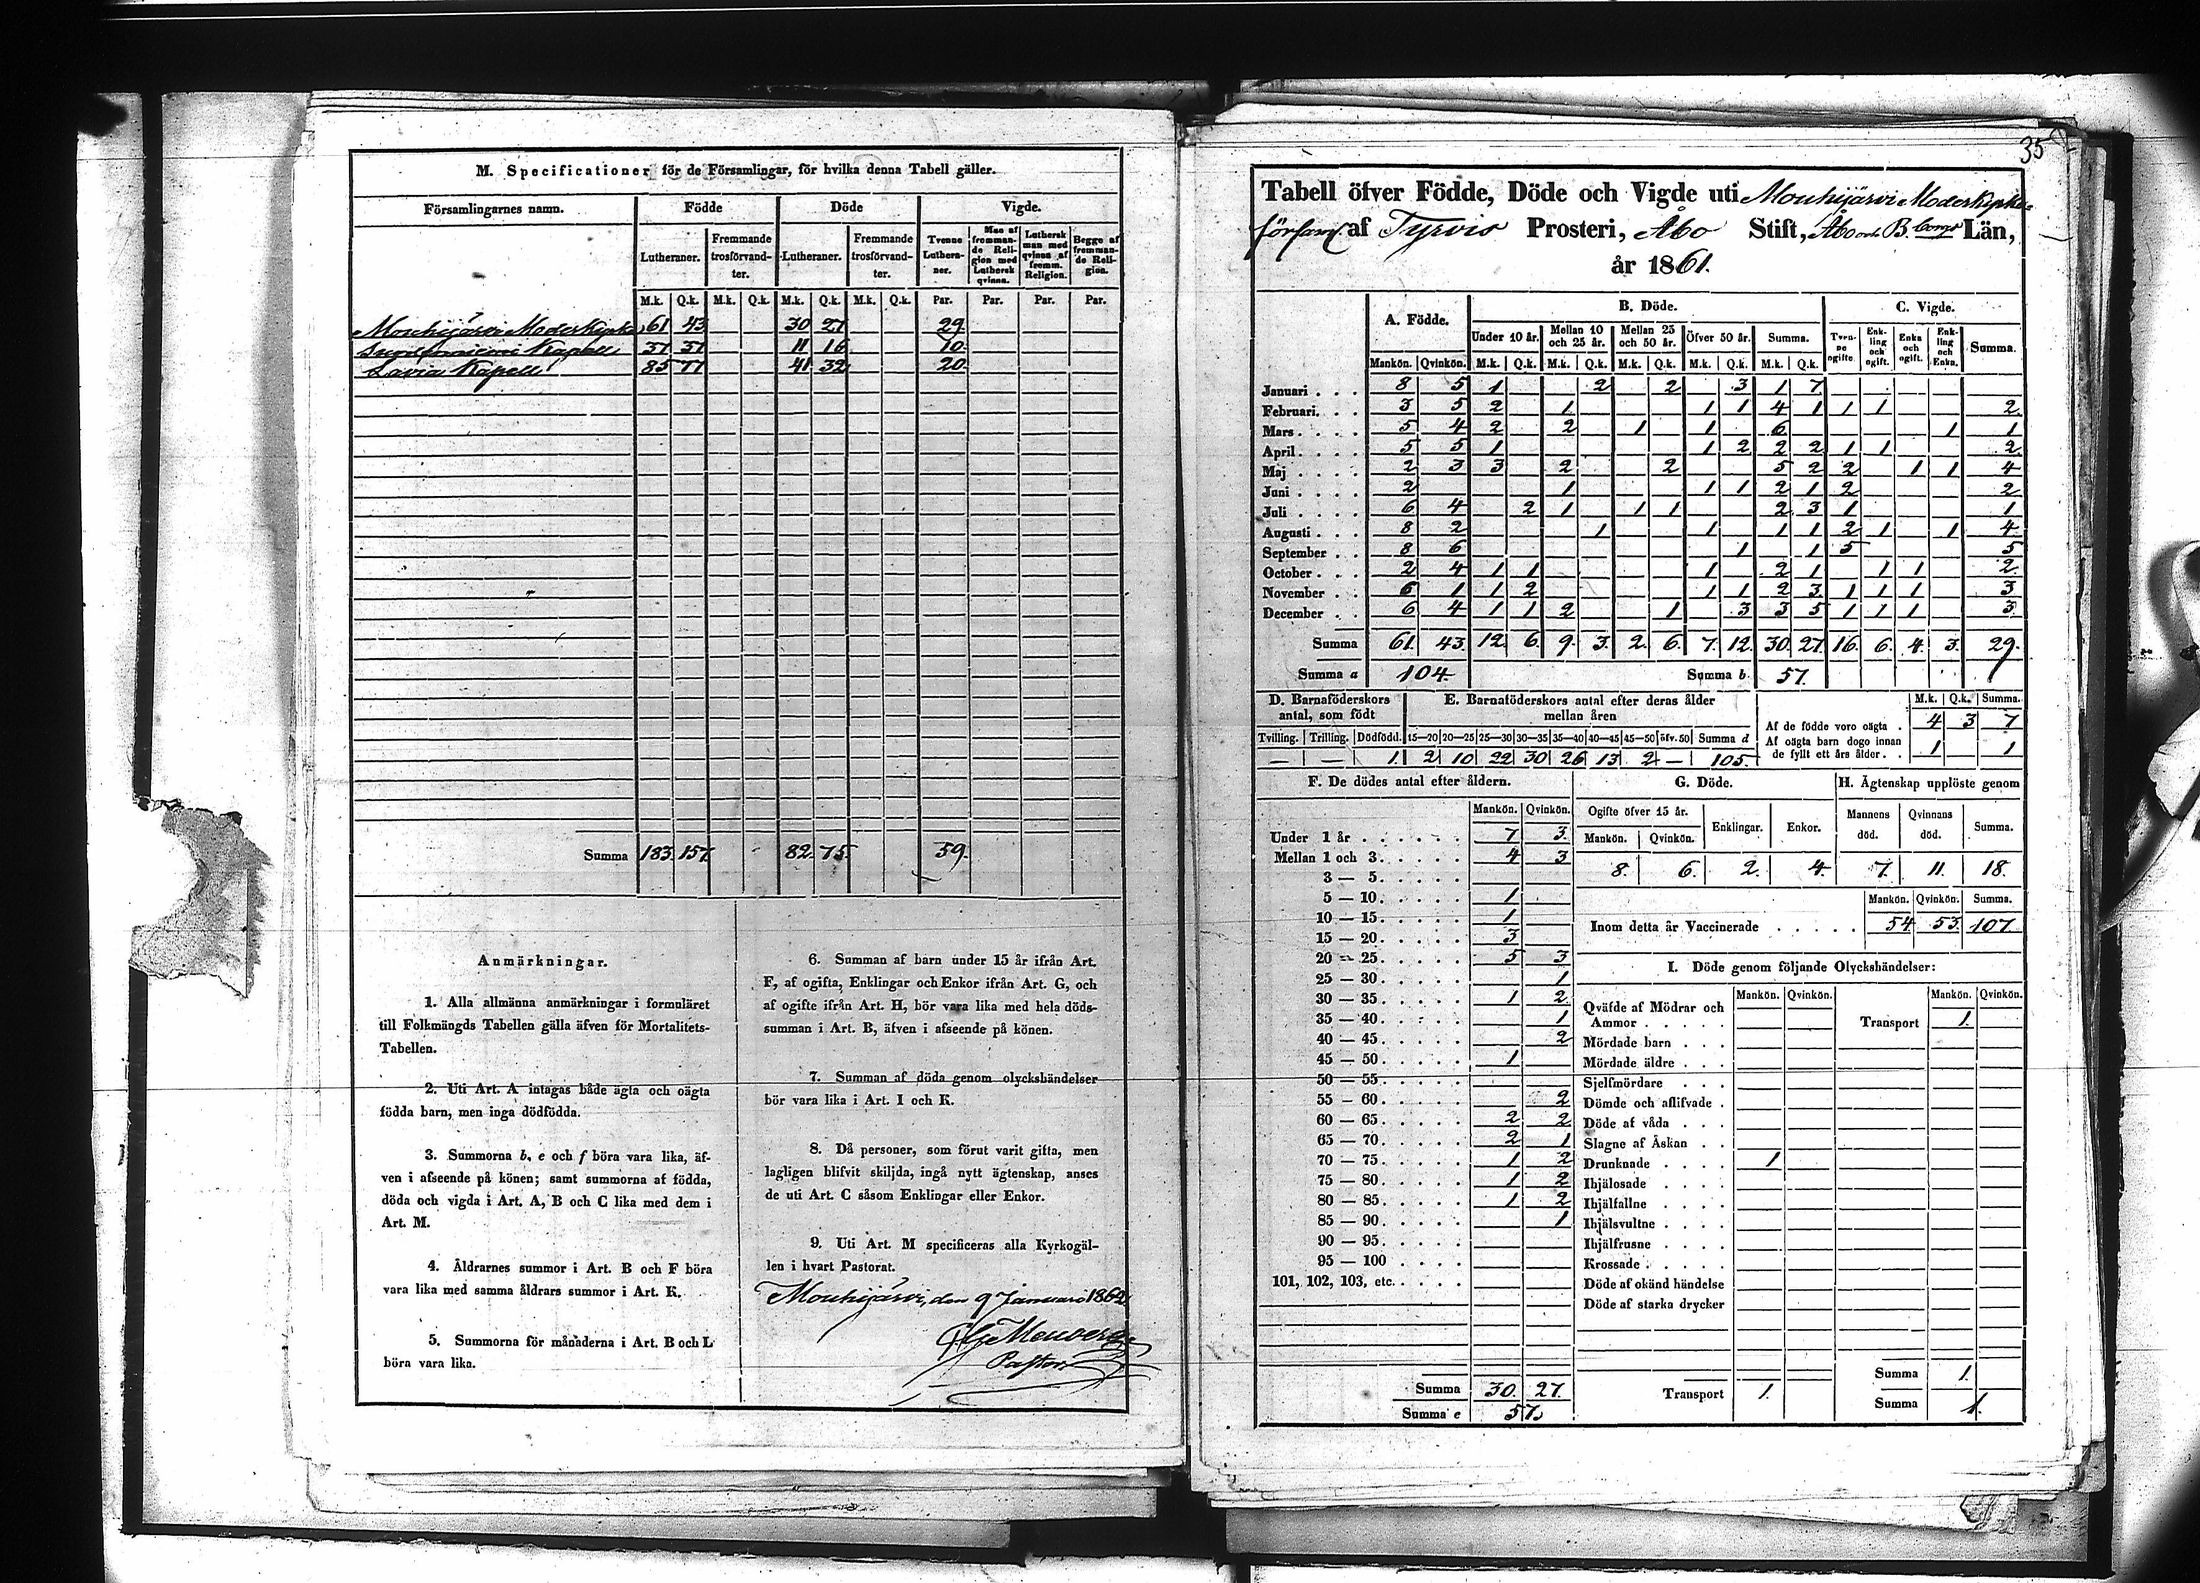 M. Specificationer för de Församlingar, för hvilka denna Tabell gäller.
Församlingarnes namn. Födde Döde Vigde.
Lutheraner. Fremmande trosförvandter. Lutheraner. Fremmande trosförvandter. Tvenne Lutheraner. Man af fremmande Religion med Luthersk qvinna. Luthersk man med qvinna af fremm. Religion. Begge af fremmande Religion.
M.k. Q.k. M.k. Q.k. M.k. Q.k. M.k. Q.k. Par. Par. Par. Par.
Mouhijärvi Moderkyrka 61 43 30 27 29.
Suoniemi Kapell 37 37 11 16 10.
Lavia Kapell 85 77 41 32 20.
Summa 183 157. 82. 75. 59.
Anmärkningar.
1. Alla allmänna anmärkningar i formuläret
till Folkmängds Tabellen gälla äfven för Mortalitets-
Tabellen.
2. Uti Art. A intagas både ägta och oägta
födda barn, men inga dödfödda.
3. Summorna b, e och f böra vara lika, äf-
ven i afseende på könen; samt summorna af födda,
döda och vigda i Art. A, B och C lika med dem i
Art. M.
4. Åldrarnes summor i Art. B och F böra
vara lika med samma åldrars summor i Art. K.
5. Summorna för månaderna i Art. B och L
böra vara lika.
6. Summan af barn under 15 år ifrån Art.
F, af ogifta, Enklingar och Enkor ifrån Art. G, och
af ogifte ifrån Art. H, bör vara lika med hela döds-
summan i Art. B, äfven i afseende på könen.
7. Summan af döda genom olyckshändelser
bör vara lika i Art. I och K.
8. Då personer, som förut varit gifta, men
lagligen blifvit skiljda, ingå nytt ägtenskap, anses
de uti Art. C såsom Enklingar eller Enkor.
9. Uti Art. M specificeras alla Kyrkogäl-
len i hvart Pastorat.
Mouhijärvi, den 9 Januari 1862
Pastor
35
Tabell öfver Födde, Döde och Vigde uti Mouhijärvi Moderkyrko-
församl. af Tyrvis Prosteri, Åbo Stift, Åbo och B.borgs Län,
år 1861.
A. Födde. B. Döde. C. Vigde.
Under 10 år. Mellan 10 och 25 år. Mellan 25 och 50 år. Öfver 50 år. Summa. Tvenne ogifte. Enkling och ogift. Enka och ogift. Enkling och Enka. Summa.
Mankön. Qvinkön. M.k. Q.k. M.k. Q.k. M.k. Q.k. M.k. Q.k. M.k. Q.k.
Januari . . . 8 5 1 2 2 3 1 7
Februari. . . 3 5 2 1 1 1 4 1 1 1 2
Mars . . . . 5 4 2 2 1 1 6 1 1
April . . . . 5 5 1 1 2 2 2 1 1 2
Maj . . . . 2 3 3 2 2 5 2 2 1 1 4
Juni . . . . 2 1 1 1 2 1 2 2
Juli . . . . 6 4 2 1 1 1 2 3 1 1
Augusti . . . 8 2 1 1 1 1 2 1 1 4
September . . 8 6 1 1 5 5
October . . . 2 4 1 1 1 2 1 1 1 2
November . . 6 1 1 2 1 1 2 3 1 1 1 3
December . . 6 4 1 1 2 1 3 3 5 1 1 1 3
Summa 61. 43. 12. 6. 9. 3. 2. 6. 7. 12. 30. 27. 16. 6. 4. 3. 29.
Summa a 104. Summa b 57.
D. Barnaföderskors antal, som födt
E. Barnaföderskors antal efter deras ålder mellan åren
Tvilling. Trilling. Dödfödd. 15—20 20—25 25—30 30—35 35—40 40—45 45—50 öfv. 50 Summa d
— — 1. 2 10 22 30 26 13 2 — 105.
M.k. Q.k. Summa.
Af de födde voro oägta . 4 3 7
Af oägta barn dogo innan
de fyllt ett års ålder . . 1 1
F. De dödes antal efter åldern.
Mankön. Qvinkön.
Under 1 år . . . . . . 7 3.
Mellan 1 och 3. . . . . 4 3
3 — 5. . . . .
5 — 10. . . . . 1
10 — 15. . . . . 1
15 — 20. . . . . 3
20 — 25. . . . . 5 3
25 — 30. . . . . 1
30 — 35. . . . . 1 2
35 — 40. . . . . 1
40 — 45. . . . . 2
45 — 50. . . . . 1
50 — 55. . . . .
55 — 60. . . . . 2
60 — 65. . . . . 2 2
65 — 70. . . . . 2 1
70 — 75. . . . . 1 2
75 — 80. . . . . 1 2
80 — 85. . . . . 1 2
85 — 90. . . . . 1
90 — 95. . . . .
95 — 100 . . . .
101, 102, 103, etc. . . . .
Summa 30. 27.
Summa e 57.
G. Döde.
Ogifte öfver 15 år. Enklingar. Enkor.
Mankön. Qvinkön.
8. 6. 2. 4.
H. Ägtenskap upplöste genom
Mannens död. Qvinnans död. Summa.
7. 11. 18.
Mankön. Qvinkön. Summa.
Inom detta år Vaccinerade . . . . . 54 53 107.
I. Döde genom följande Olyckshändelser:
Mankön. Qvinkön. Mankön. Qvinkön.
Qväfde af Mödrar och
Ammor . . . . . Transport 1.
Mördade barn . . .
Mördade äldre . . .
Sjelfmördare . . .
Dömde och aflifvade .
Döde af våda . . .
Slagne af Åskan . .
Drunknade . . . . 1
Ihjälosade . . . .
Ihjälfallne . . . .
Ihjälsvultne . . . .
Ihjälfrusne . . . .
Krossade . . . . .
Döde af okänd händelse
Döde af starka drycker
Summa 1.
Transport 1. Summa 1.